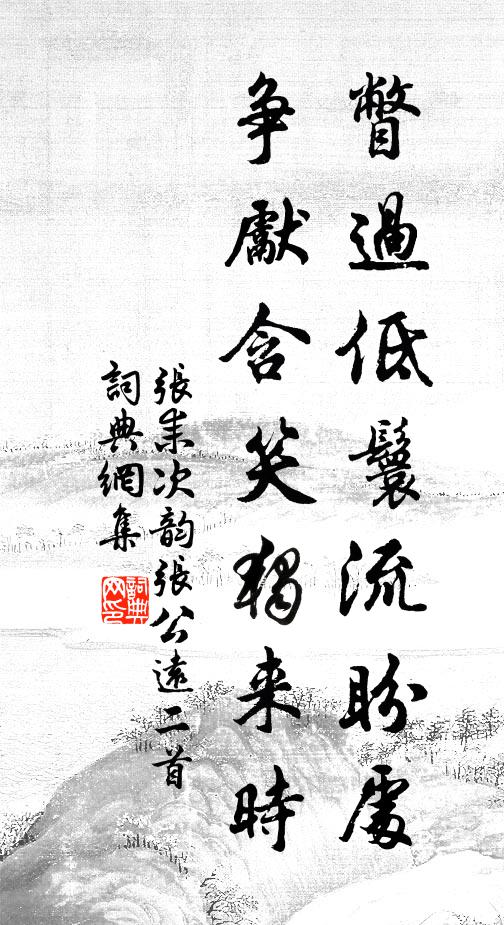 瞥過低鬟流盼處
爭獻含笑獨来時
張耒次韵張公遠二首
詞典網集
詞典网印